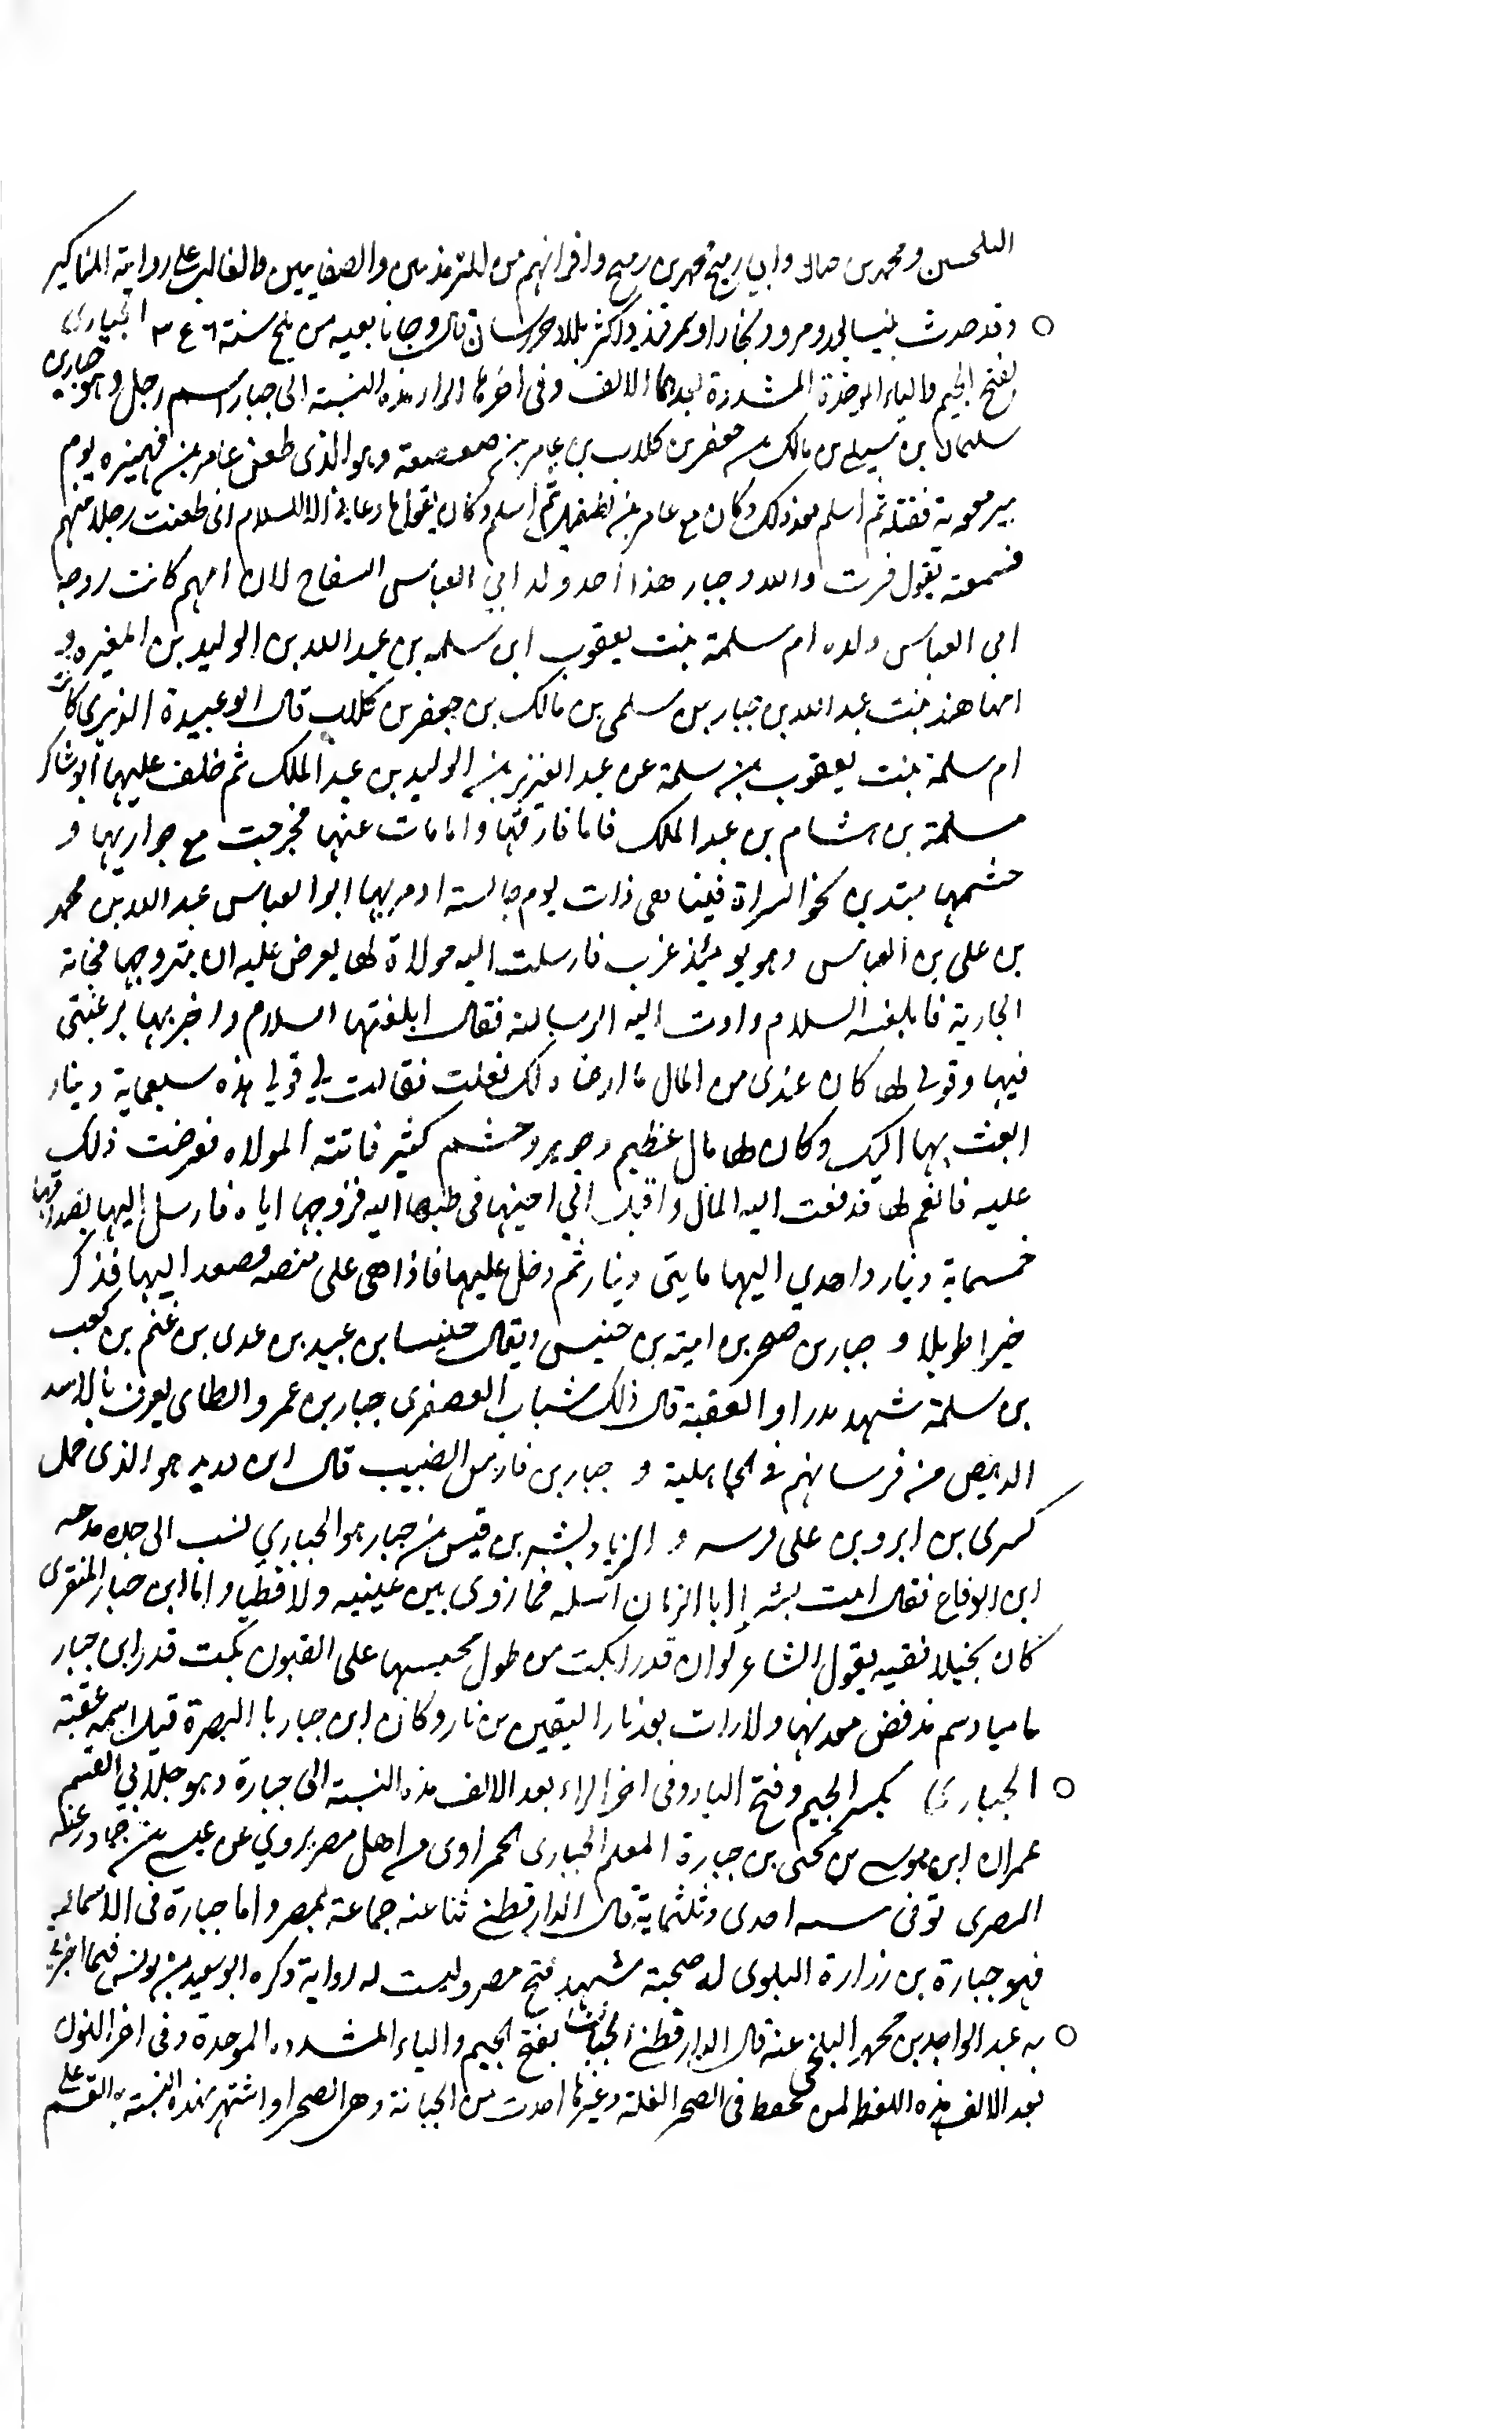 الحسن ومحمد بن صالح وابي رميح محمد بن رميح واقرانهم من الترمذيين والصغانيين والغالب على رواية المناكير
وقد حدث بنيسابور ومرو وبخارا وسمرقند واكثر بلاد خراسان وجانا نعيه من بلخ سنة ٣٤٦ الجباري
بفتح الجيم والباء الموحدة المشددة بعدهما الالف وفى اخرها الراء هذه النسبة الى جبار اسم رجل وهو جبارى
سلمان بن سلمى بن مالك بن جعفر بن كلاب بن عامر بن صعصعة وهو الذى طعن عامر بن فهيره يوم
بير معونة فقتله ثم اسلم بعد ذلك وكان مع عامر بن الطفيل ثم اسلم وكان يقول ما دعانى الى الاسلام انى طعنت رجلا منهم
فسمعته يقول فزت والله وجبار هذا احد ولد ابي العباس السفاح لان امهم كانت زوجه
ابى العباس ولده ام سلمة بنت يعقوب ابن سلمه بن عبد الله بن الوليد بن المغيره و
امها هند بنت عبد الله بن جبار بن سلمى بن مالك بن جعفر بن كلاب قال ابو عبيدة الزبيرى كانت
ام سلمة بنت يعقوب بن سلمة عن عبد العزيز بن الوليد بن عبد الملك ثم خلف عليها ابو شاكر
مسلمة بن هشام بن عبد الملك فاما فارقها واما مات عنها فخرجت مع جواريها و
حشمها مبتدين نحو السراة فبينا هى ذات يوم جالسة اذ مر بها ابو العباس عبد الله بن محمد
بن على بن العباس وهو يومئذ عزب فارسلت اليه مولاة لها يعرض عليه ان يتزوجها فجاته
الجارية فابلغته السلام وادت اليه الرسالة فقال ابلغتها السلام واخبريها برغبتى
فيها وقولى لها كان عندى من المال ما ارضا ذلك فعلت فقالت لي قولي هذه سبعماية دينار
ابعث بها اليك وكان لها مال عظيم وجوهر وحشم كثير فاتته المولاه فعرضت ذلك
عليه فانعم لها فدفعت اليه المال واقبل الي اخيها فى طلبها اليه فزوجها اياه فارسل اليها بصداقها
خمسماية دينار واهدي اليها مايتى دينار ثم دخل عليها فاذا هى على منصه فصعد اليها فذكر
خبرا طويلا و جبار بن صخر بن امية بن خنيس ويقال خنيسا بن عبيد بن عدى بن غنم بن كعب
بن سلمة شهد بدرا والعقبة قال ذلك شباب العصفرى جبار بن عمرو الطاى يعرف بالاسد
الرهيص من فرسانهم فى الجاهلية و جبار بن فارس الضبيب قال ابن دريد هو الذى حمل
كسرى بن ابرويز على فرسه و الزياد بشر بن قيس بن جبار هو الجباري نسب الى جده مدحه
ابن الوقاع فقال امت بشر ابا الزيان اسله فما زوى بين عينيه ولا قطبا واما ابن جبار المنقرى
كان بخيلا ففيه يقول الشاعر لو ان قدرا بكت من طول محبسها على القبول بكت قدر ابن جبار
ما مسها دسم مذ فض معدنها ولا رات بعد نار القين من نار وكان ابن جبار بالبصرة قيل اسمه عقبة
الجباري بكسر الجيم وفتح الباء وفى اخر الراء بعد الالف هذه النسبة الى جبارة وهو جد لابي القسم
عمران ابن موسى بن يحيى بن جبارة المعلم الجبارى الحمراوى من اهل مصر يروي عن عيسى بن حماد زغبه
المصرى توفى سنه احدى وثلثماية قال الدارقطني ثنا عنه جماعة بمصر واما جبارة فى الاسماء
فهو جبارة بن زرارة البلوى له صحبة شهد فتح مصر وليست له رواية ذكره ابو سعيد بن يونس فيما اخبرنا
به عبد الواحد بن محمد البلخى عنه قال الدارقطني الجبان بفتح الجيم والباء المشدده الموحدة وفى اخر النون
بعد الالف هذه اللفظ لمن يحفظ فى الصحرا الغلة وغيرها اخذت من الجبانة وهى الصحرا واشتهر بهذه النسبة ابو القسم على